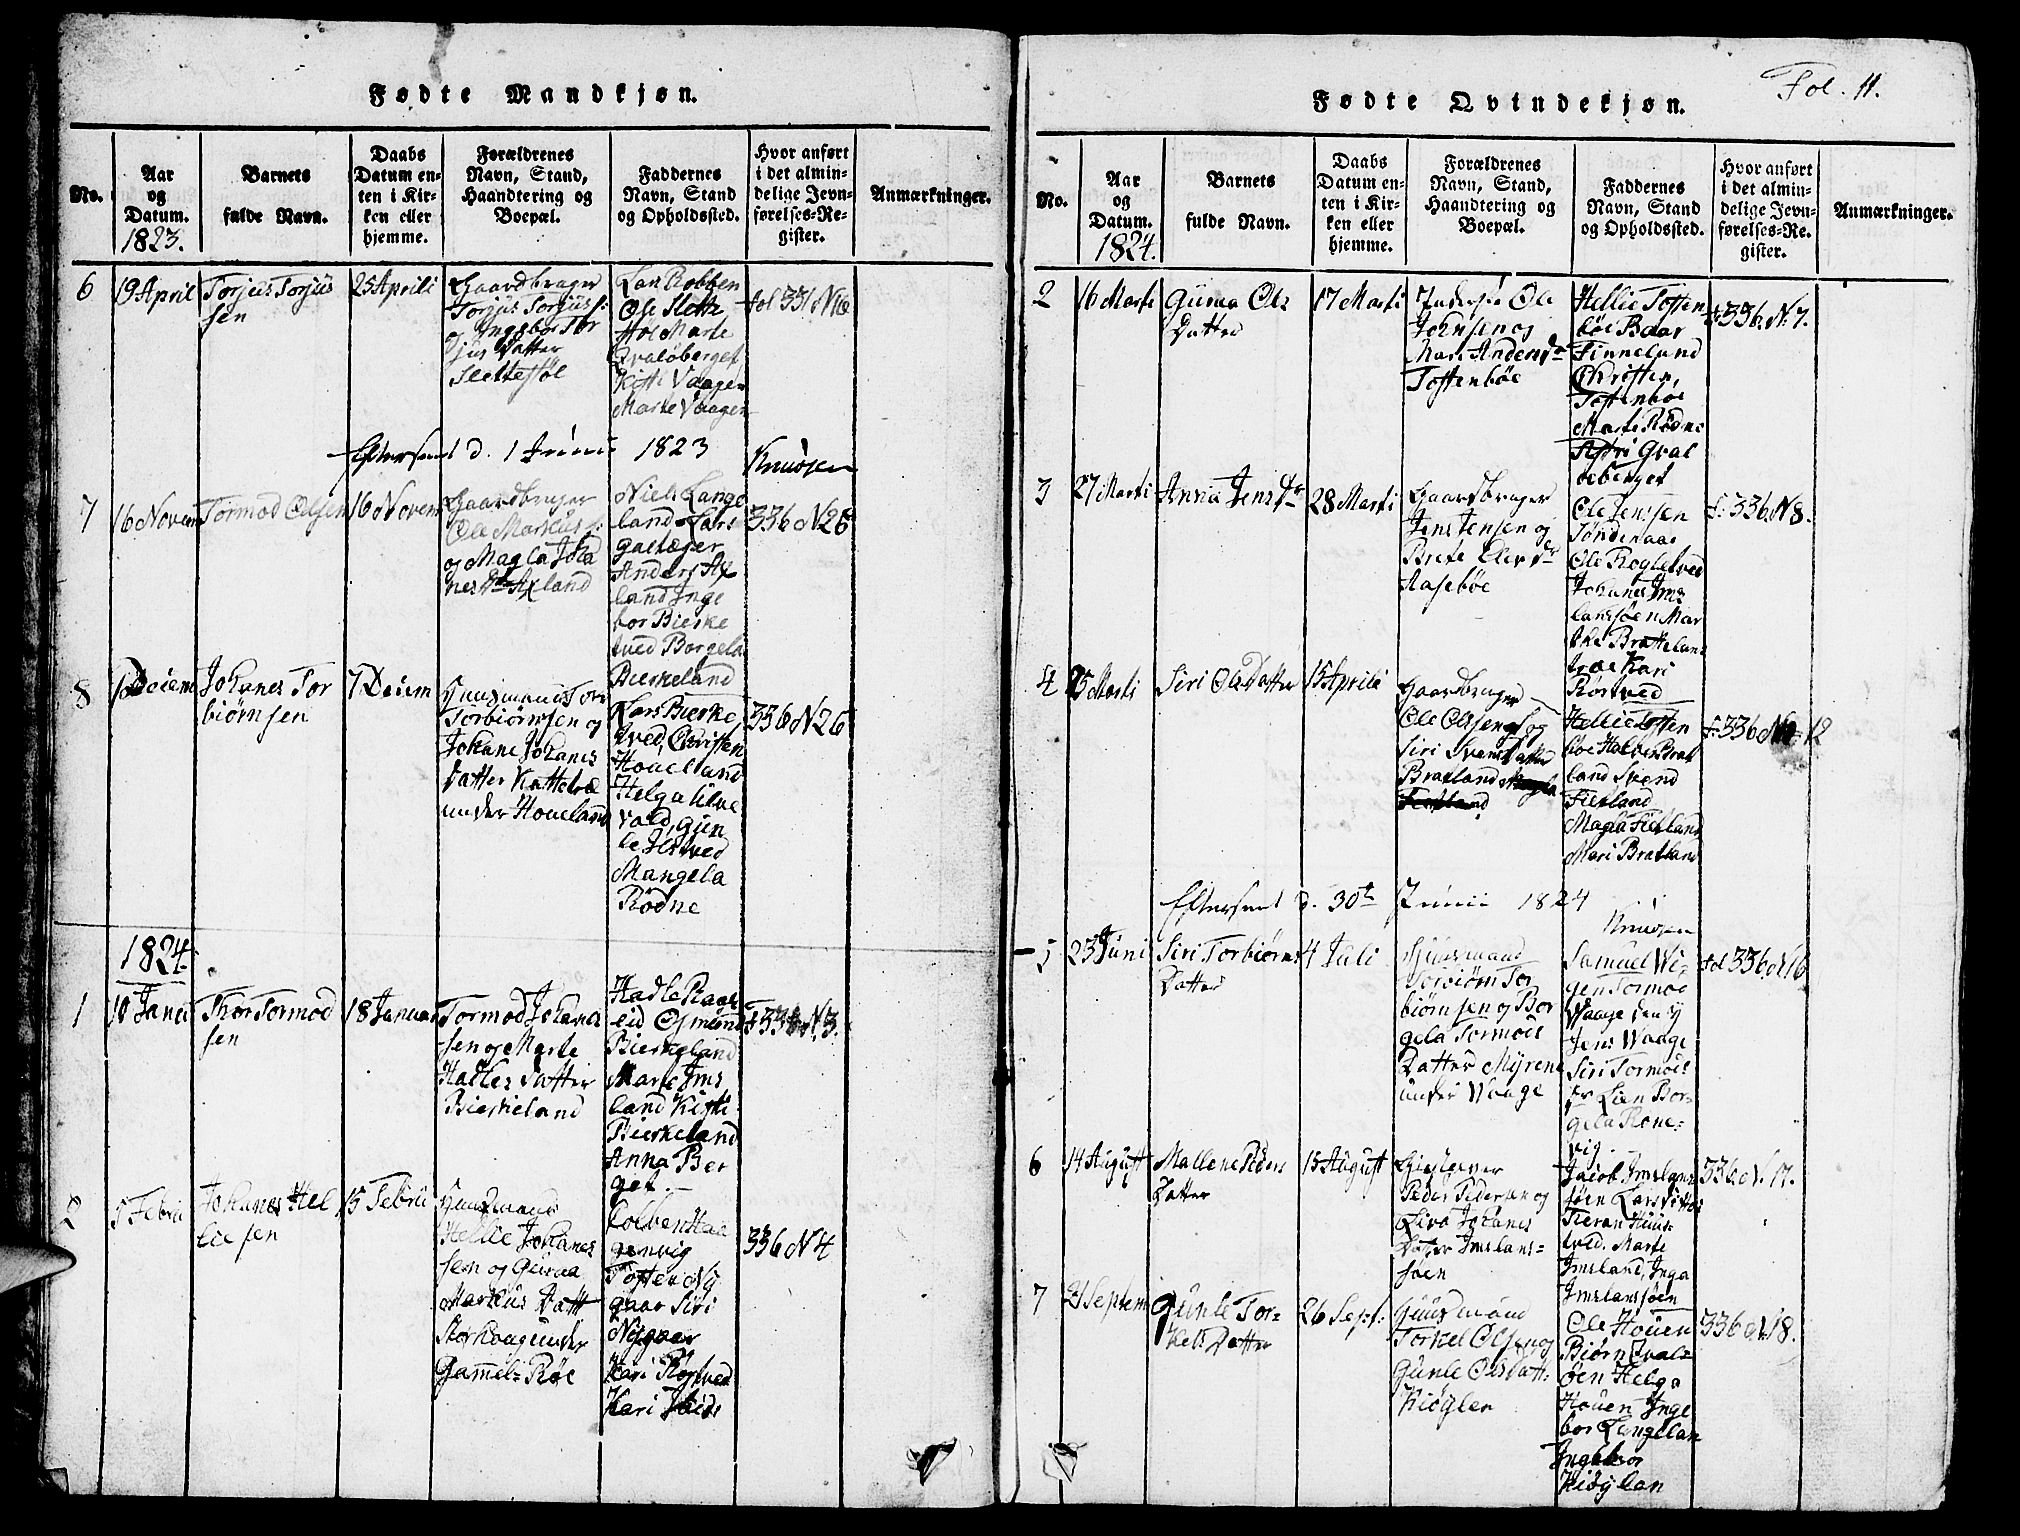 Fødte Mandkjøn.
No.
Aar
og
Datum.
1823.
Barnets
fulde Navn.
Daabs
Datum en-
ten i Kir-
ken eller
hjemme.
Forældrenes
Navn, Stand,
Haandtering og
Boepæl.
Faddernes
Navn, Stand
og Opholdssted.
Hvor anført
i det almin-
delige Jevn-
førelses-Re-
gister.
Anmærkninger.
6
19 April
Torjus Torjus
sen
25 Aprili
Gaardbruger
Torjus Torjuss:
og Ingebor Tor
Datter
Slettestøl
Ole
Marte
Vaage
Marte Vaagen
Fol 331 N 10
Eftersent d. 1 Junii 1823
Knudsen
7
16 Novem
Tormod Olsen
16 Novem
Gaardbruger
Ole Markus s:
og Magla Joha
nes Dtr Axland
Niels Lange
land Lars
Anders Ax
land Inge
bor Bierke
tved Borgela
Bierkeland
336 N 25
8
Decem
Johanes Tor
biørnsen
7 Decem
Huusmand
Torbiørnsen og
Johane Johanes
Datter Kattetræ
under Houeland
Lars Bierke
tved, Christen
Houeland
Helga Ulve
vold, Gun
le
Mangela
Rødne
336 N 26
1824
1
10 Janu
Thor Tormod
sen
18 Januar
Tormod Johanes
sen og Marte
Hadles Datter
Bierkeland
Hadle
eid Osmund
Bierkeland
Marte Ims
land Kisti
Bierkeland
Anna Ber
get.
F 336 N. 3.
2
5 Febru
Johanes Hel
lie sen
15 Febru
Huusmand
Hellie Johanes
sen og Gurua
Markus Datt
Storhaug under
Gamel-Røe
Colben Hau
genvig
Tosten Ny
gaar Siri
Nygaar
Kari Røstved
Kari
336 N 4
Fol. 11.
Fødte Qvindekjøn.
No.
Aar
og
Datum.
1824.
Barnets
fulde Navn.
Daabs
Datum en-
ten i Kir-
ken eller
hjemme.
Forældrenes
Navn, Stand,
Haandtering og
Boepæl.
Faddernes
Navn, Stand
og Opholdssted.
Hvor anført
i det almin-
delige Jevn-
førelses-Re-
gister.
Anmærkninger.
2
16 Marti
Guma Ols
Datter
17 Marti
Inderste Ole
Johnsen og
Mari Anders Dtr
Tostenbøe
Hellie Tosten
bøe Baar
Finneland
Christen,
Tostenboe
Marte Rødne
Siri Qval
oeberget
F 336. N. 7.
3
27 Marti
Anna Jens Dr
28 Marti
Gaardbruger
Jens Jensen og
Brete Oles Dtr
Aasebøe
Ole Jenssen
Søndenaae
Ole Rogletved
Johanes Ims
landssøen Mar
the Bratteland
træe Kari
Røstved
F. 336. N 8.
4
25 Marti
Siri Ols Datter
15 Aprili
Gaardbruger
Ole Olsen og
Siri Svens Datter
Bratland
Hellie Tosten
bøe Halvor Brat
land Svend
Fieland
Magla Fieland
Mari Bratland
F. 336 N 12
Eftersent d. 30te Junii 1824
Knudsen
5
23 Juni
Siri Torbiørns
Datter
4 Juli
Huusmand
Torbiørn Tor
biørnsen og Bor
gela Tormois
Datter Myrene
under Waage
Samuel Wi-
gen Tormoe
Waage den y
Jens Waage
Siri Tormois
Lien Bor-
gela Rone-
vig.
Fol 336 N 16
6
14 August
Mallene Peders
Datter
15 August
Giestgever
Peder Pedersen og
Siva Johanes
Datter Imslans-
søen
Jacob Imslans
søen Lars
tved. Marte
Imsland, Inga
Imslanssøen
336. N. 17.
7
21 Septem
Gunle Tor-
kels Datter
26 Sept:
Huusmand
Torkel Olsen og
Gunle Ols Datt:
Kiøglen
Ole Houen
Biørn Qval-
øen Helga
Houen Inge
bor Langelan
Ingebor
Kiøglan
336 N. 18.